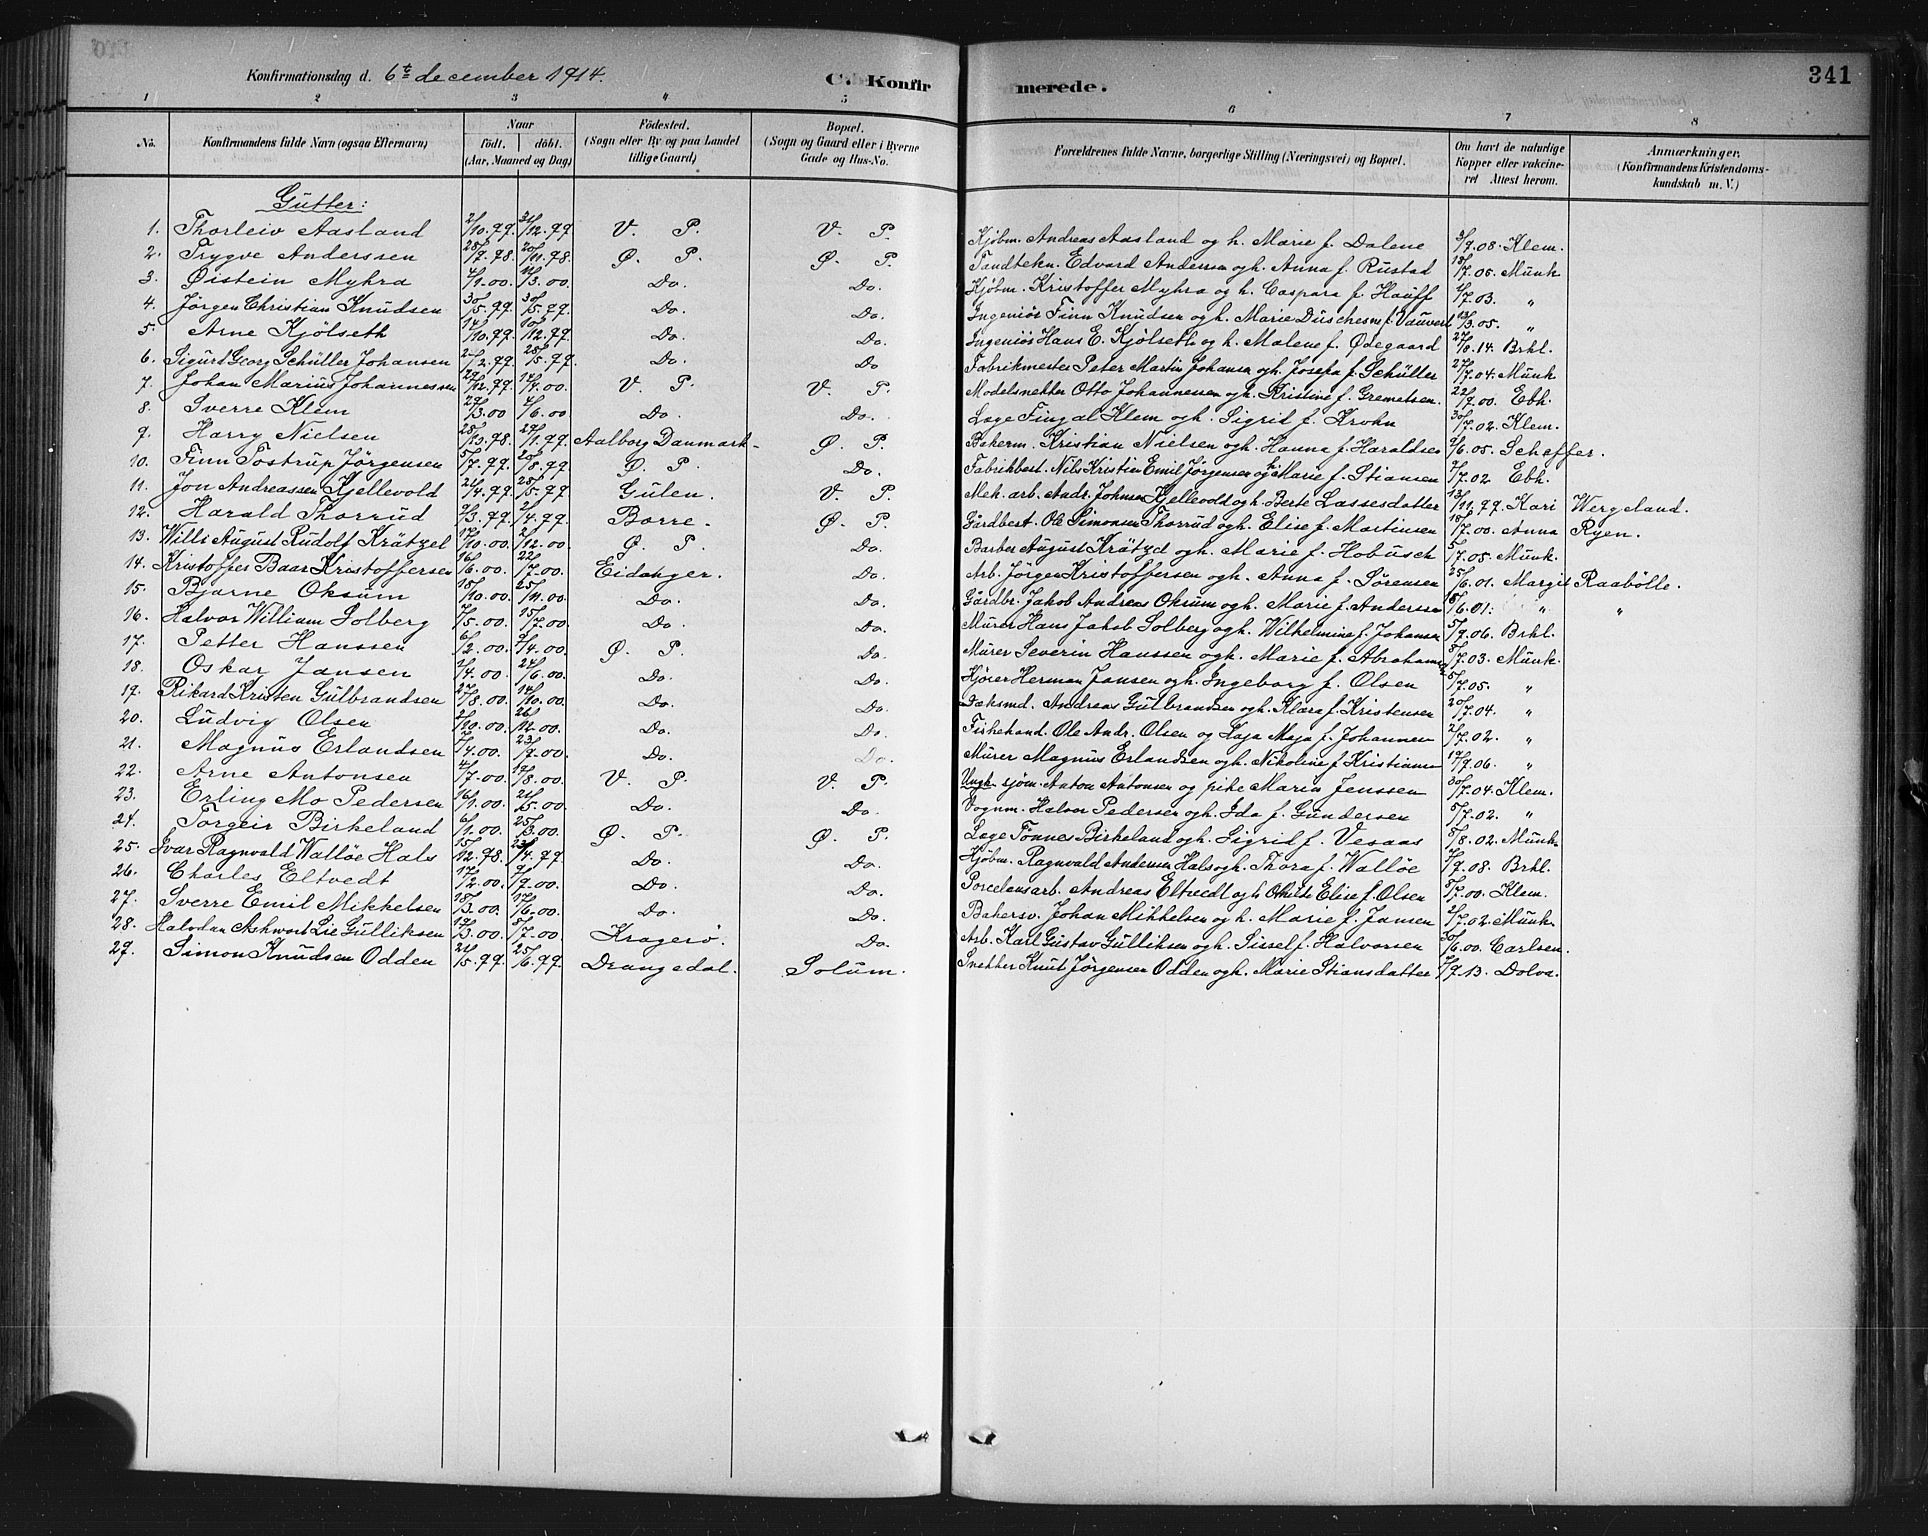 341
Konfirmationsdag d. 6te december 1914.
C. Konfirmerede.
1 2 3 4 5 6 7 8
No. Konfirmandens fulde Navn (ogsaa Efternavn) Naar født, døbt. (Aar, Maaned og Dag) Fødested. (Sogn eller By og paa Landet tillige Gaard) Bopæl. (Sogn og Gaard eller i Byerne Gade og Hus-No. Forældrenes fulde Navne, borgerlige Stilling (Næringsvei) og Bopæl. Om havt de naturlige Kopper eller vakcineret Attest herom. Anmærkninger. (Konfirmandens Kristendomskundskab m. V.)
Gutter:
1. Thorleiv Aasland 2/10.99 31/12.99 V. P. V. P. Kjøbm. Andreas Aasland og h. Marie f. Dalene 3/9.08. Klem.
2. Trygve Anderssen 28/9.98. 20/11.98. Ø. P. Ø. P. Tandtekn. Edvard Andersen og h. Anna f. Rustad 15/7.05. Munk
3. Øistein Myhra 4/1.00. 11/3.00. Do. Do. Kjøbm. Kristoffer Myhra og h. Caspara f. Hauff 6/7.03. "
4. Jørgen Christian Knudsen 30/5.99. 30/5.99. Do. Do. Ingeniør Finn Knudsen og h. Marie Duschesne f. Vauvert 13/3.05. "
5. Arne Kjølseth 14/10.99. 10/12.99. Do. Do. Ingeniør Hans E. Kjølseth og h. Malene f. Ødegaard 27/8.14. Brhl.
6. Sigurd Georg Schüller Johansen 2/2.99. 28/5.99. Do. Do Fabrikmester Peter Martin Johansen og h. Josefa f. Schüller 27/7.04. Munk
7. Johan Marius Johannessen 29/12.99. 12/4.00. V. P. V. P. Modelsnekker Otto Johannesen og h. Kristine f. Gremetsen. 22/9.00. Ebh.
8. Sverre Klem 29/3.00 4/6.00 Do. Do. Læge Fingal Klem og h. Sigrid f. Krohn 30/7.02. Klem.
9. Harry Nielsen 28/3.98. 29/1.99. Aalborg Danmark. Ø. P. Bakerm. Kristian Nielsen og h. Hanna f. Haraldsen 9/6.05. Scheffer.
10. Finn Tostrup Jørgensen 5/7.99. 20/8.99 Ø. P. Do. Fabrikbest. Nils Kristian Emil Jørgensen og h. Marie f. Stiansen 7/7.02 Ebh.
11. Jon Andreassen Kjellevold 21/4.99. 28/5.99 Gulen. V. P. Mek. arb. Andr. Johnsen Kjellevold og h. Berte Lassesdatter 13/11.99. Kari Wergeland.
12. Harald Thorrud 9/3.99. 2/4.99. Borre. Ø. P. Gårdbest. Ole Simonsen Thorrud og h. Elise f. Martinsen 18/7.00. Anna Ryen.
13. Willi August Rudolf Krätzel 17/10.00. 2/12.00. Ø. P. Do. Barber August Krätzel og h. Marie f. Hobusch 5/7.05. Munk.
14. Kristoffer Baar Kristoffersen 16/6.00. 22/7.00. Eidanger. Do. Arb. Jørgen Kristoffersen og h. Anna f. Sørensen 25/6.01. Margit Raabölle.
15. Bjarne Oksum 15/10.00. 25/11.00. Do. Do. Gårdbr. Jakob Andreas Oksum og h. Marie f. Anderssen 18/6.01. " "
16. Halvor William Solberg 7/5.00. 15/7.00. Do. Do. Murer Hans Jakob Solberg og h. Wilhelmine f. Johansen 5/9.06. Brhl.
17. Petter Hanssen 6/2.00. 9/4.00. Ø. P. Do. Murer Severin Hanssen og h. Marie f. Abrahamsen 8/7.03. Munk.
18. Oskar Jansen 2/4.00. 24/6.00. Do. Do. Kjører Herman Jansen og h. Ingeborg f. Olsen 5/7.05. "
19. Rikard Kristen Gulbrandsen 27/8.00. 14/10.00. Do. Do. Andreas Gulbrandsen og h. Klara f. Kristensen 20/7.04. "
20. Ludvig Olsen 2/10.00. 26/12.00. Do. Do. Fiskehand. Ole Andr. Olsen og Laja Maja f. Johannesen 2/7.02. "
21. Magnus Erlandsen 7/4.00. 23/9.00. Do. Do. Murer Magnus Erlandsen og h. Nikoline f. Kristiansen 19/9.06. "
22. Arne Antonsen 4/7.00. 19/8.00. V. P. V. P. Ungk. sjøm. Anton Antonsen og pike Maren Jenssen 30/7.04. Klem.
23. Erling Mo Pedersen 16/1.00. 21/5.00. Do. Do. Vognm. Halvor Pedersen og h. Ida f. Gundersen 5/7.02. "
24. Torgeir Birkeland 6/1.00. 25/3.00. Ø. P. Ø. P. Læge Tønnes Birkeland og h. Sigrid f. Vesaas 5/8.02. Munk.
25. Ivar Ragnvald Walløe Hals 15/12.98. 23/4.99. Do. Do. Kjøbm. Ragnvald Andersen Hals og h. Thora f. Walløe 7/9.08. Brhl.
26. Charles Eltvedt 17/2.00. 9/9.00. Do. Do. Porcelænsarb. Andreas Eltvedt og h. Othilde Elise f. Olsen 8/7.00. Klem.
27. Sverre Emil Mikkelsen 18/3.00. 17/6.00. Do. Do. Bakersv. Johan Mikkelsen og h. Marie f. Jansen 2/7.02. Munk.
28. Halvdan Ashwort Lie Gulliksen 19/3.00. 8/7.00. Kragerø. Do. Arb. Karl Gustav Gulliksen og h. Sissel f. Halvorsen 30/6.00. Carlsen.
29. Simon Knudsen Odden 21/5.99. 25/6.99. Drangedal. Solum. Snekker Knut Jørgensen Odden og h. Marie Stiansdatter 7/9.13. Dolva.